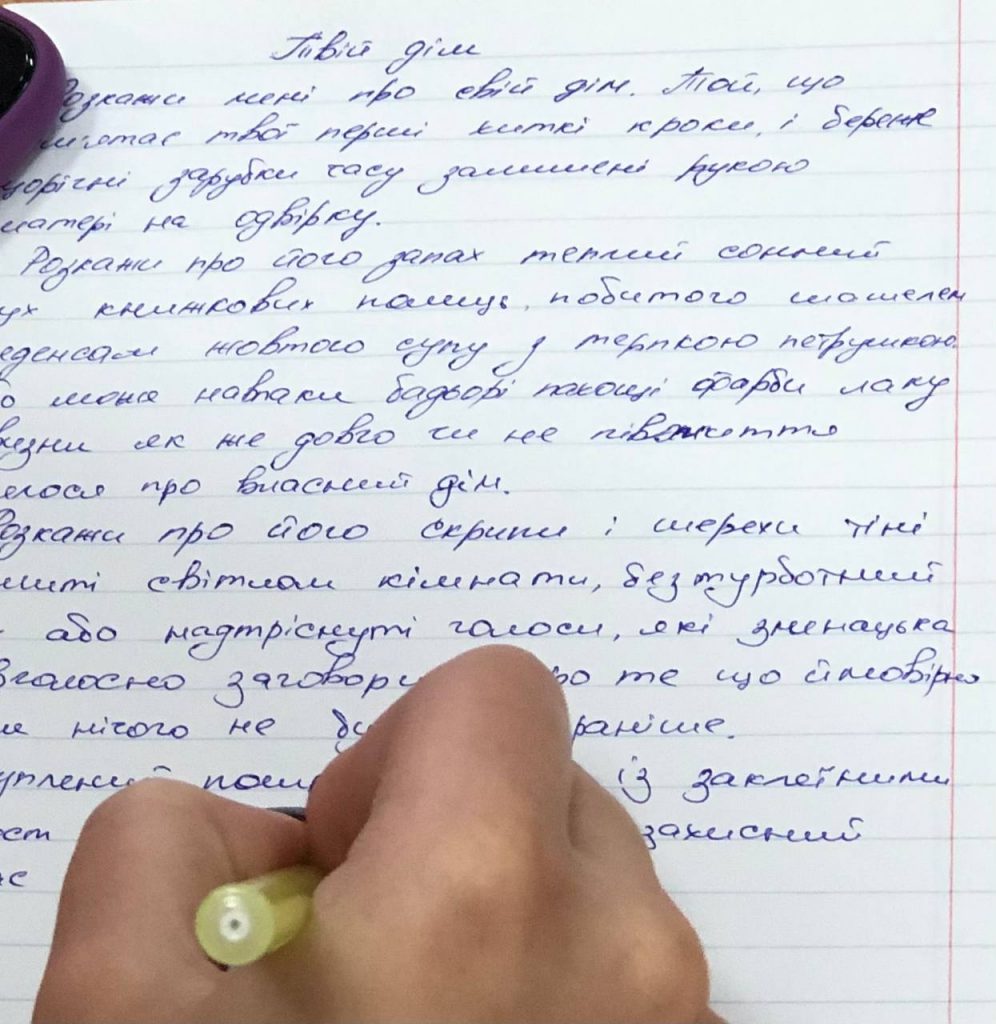 Твій дім
Розкажи мені про свій дім. Той, що
м'ятає твої перші хиткі кроки, і береже
щорічні зарубки часу залишені рукою
матері на одвірку.
Розкажи про його запах теплий сонний
ух книжкових полиць, побитого шашелем
еденсам жовтого супу з терпкою петрушкою.
о може навпаки бадьорі пахощі фарби лаку
визни як же довго чи не півжиття
елося про власний дім.
Розкажи про його скрипи і шерехи тіні
литі світлом кімнати, безтурботний
або надтріснуті голоси, які зненацька
вголосно заговори ро те що ймовірно
ли нічого не бу раніше.
уплений пош із заклеїними
ост захисний